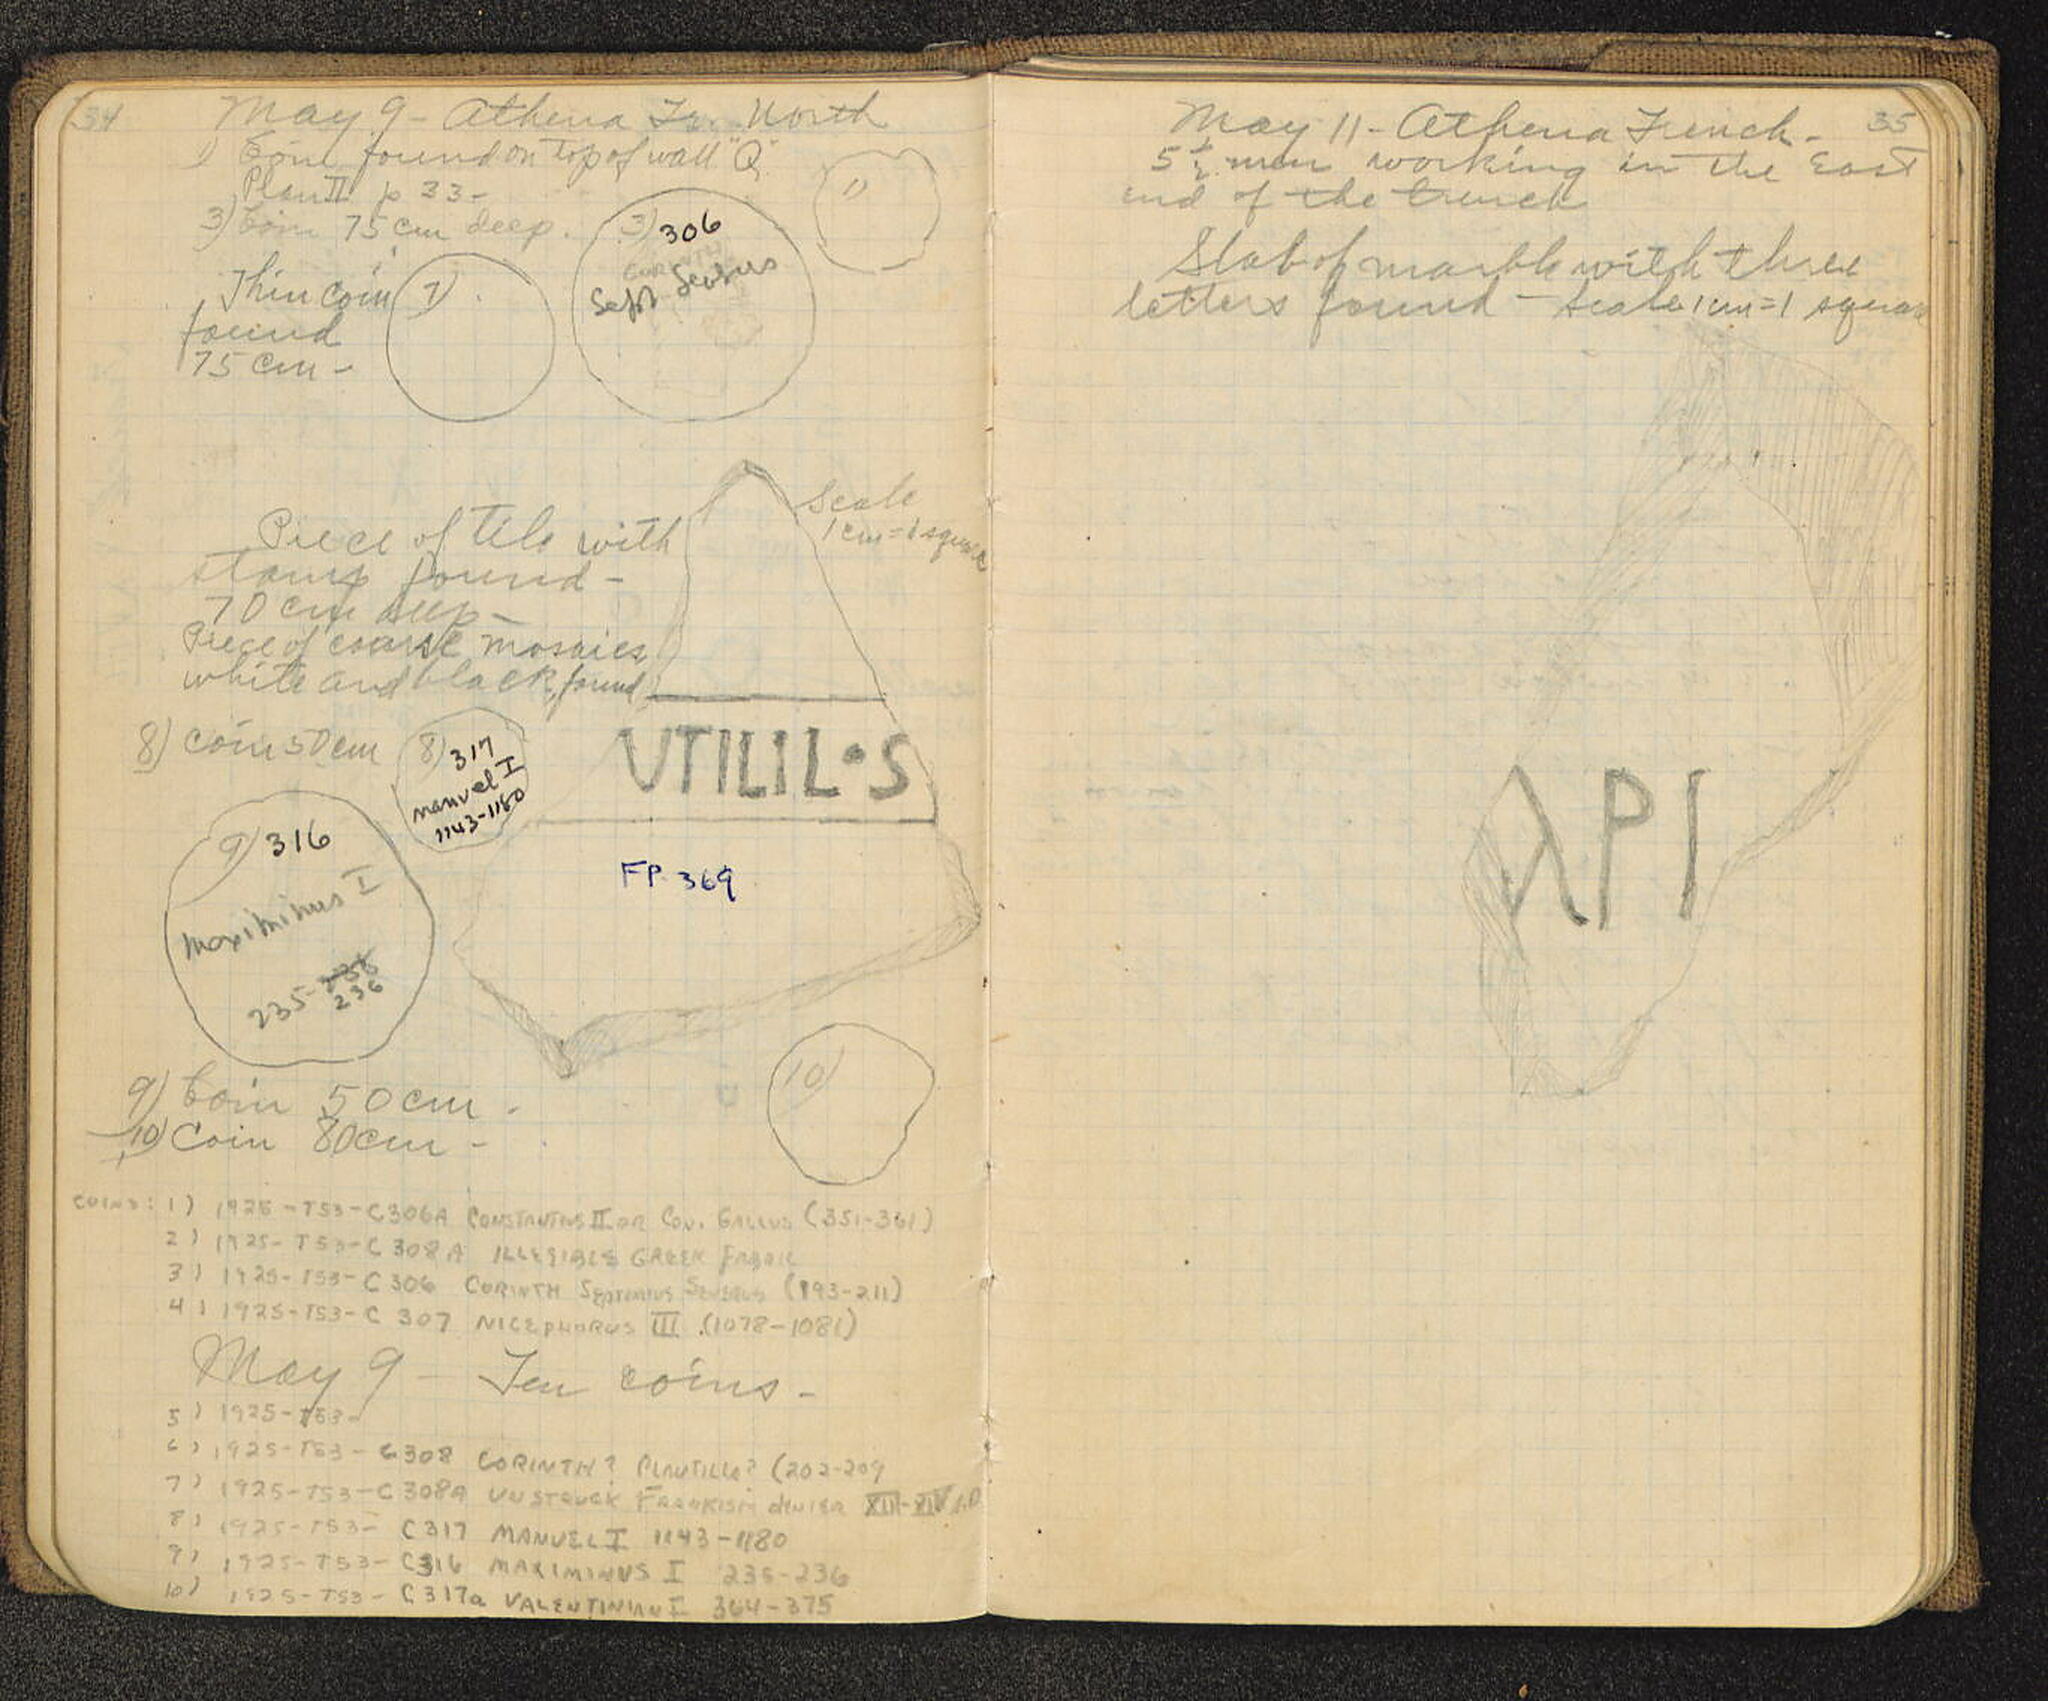 34
May 9 - Athena Tr. North
1) Coin found on top of wall "Q"
Plan II p 33 -
3) Coin 75 cm deep.
1)
3) 306
CORINTH
Sept Severus
Thin coin
found
75 cm -
7)
Scale
1 cm = 1 square
Piece of tile with
stamp found -
70 cm deep -
Piece of coarse mosaics,
white and black, found
8) Coin 50 cm
8) 317
Manuel I
1143-1180
UTILIL•S
FP. 369
9) 316
Maximinus I
235-238
236
10)
9) Coin 50 cm -
10) Coin 80 cm -
COINS: 1) 1925-T53-C306A CONSTANTIUS II OR CON. GALLUS (351-361)
2) 1925-T53-C308A ILLEGIBLE GREEK FABRIC
3) 1925-T53-C306 CORINTH SEPTIMIUS SEVERUS (193-211)
4) 1925-T53-C 307 NICEPHORUS III (1078-1081)
May 9 - Ten coins -
5) 1925-T53-
6) 1925-T53-C308 CORINTH? PLAUTILLA? (202-209
7) 1925-T53-C308A UNSTRUCK FRANKISH denier XIII-XIV A.D.
8) 1925-T53- C317 MANUEL I 1143-1180
9) 1925-T53- C316 MAXIMINUS I 235-236
10) 1925-T53- C317a VALENTINIAN I 364-375
35
May 11 - Athena Trench -
5½ men working in the East
end of the trench
Slab of marble with three
letters found - Scale 1 cm = 1 square
λPI